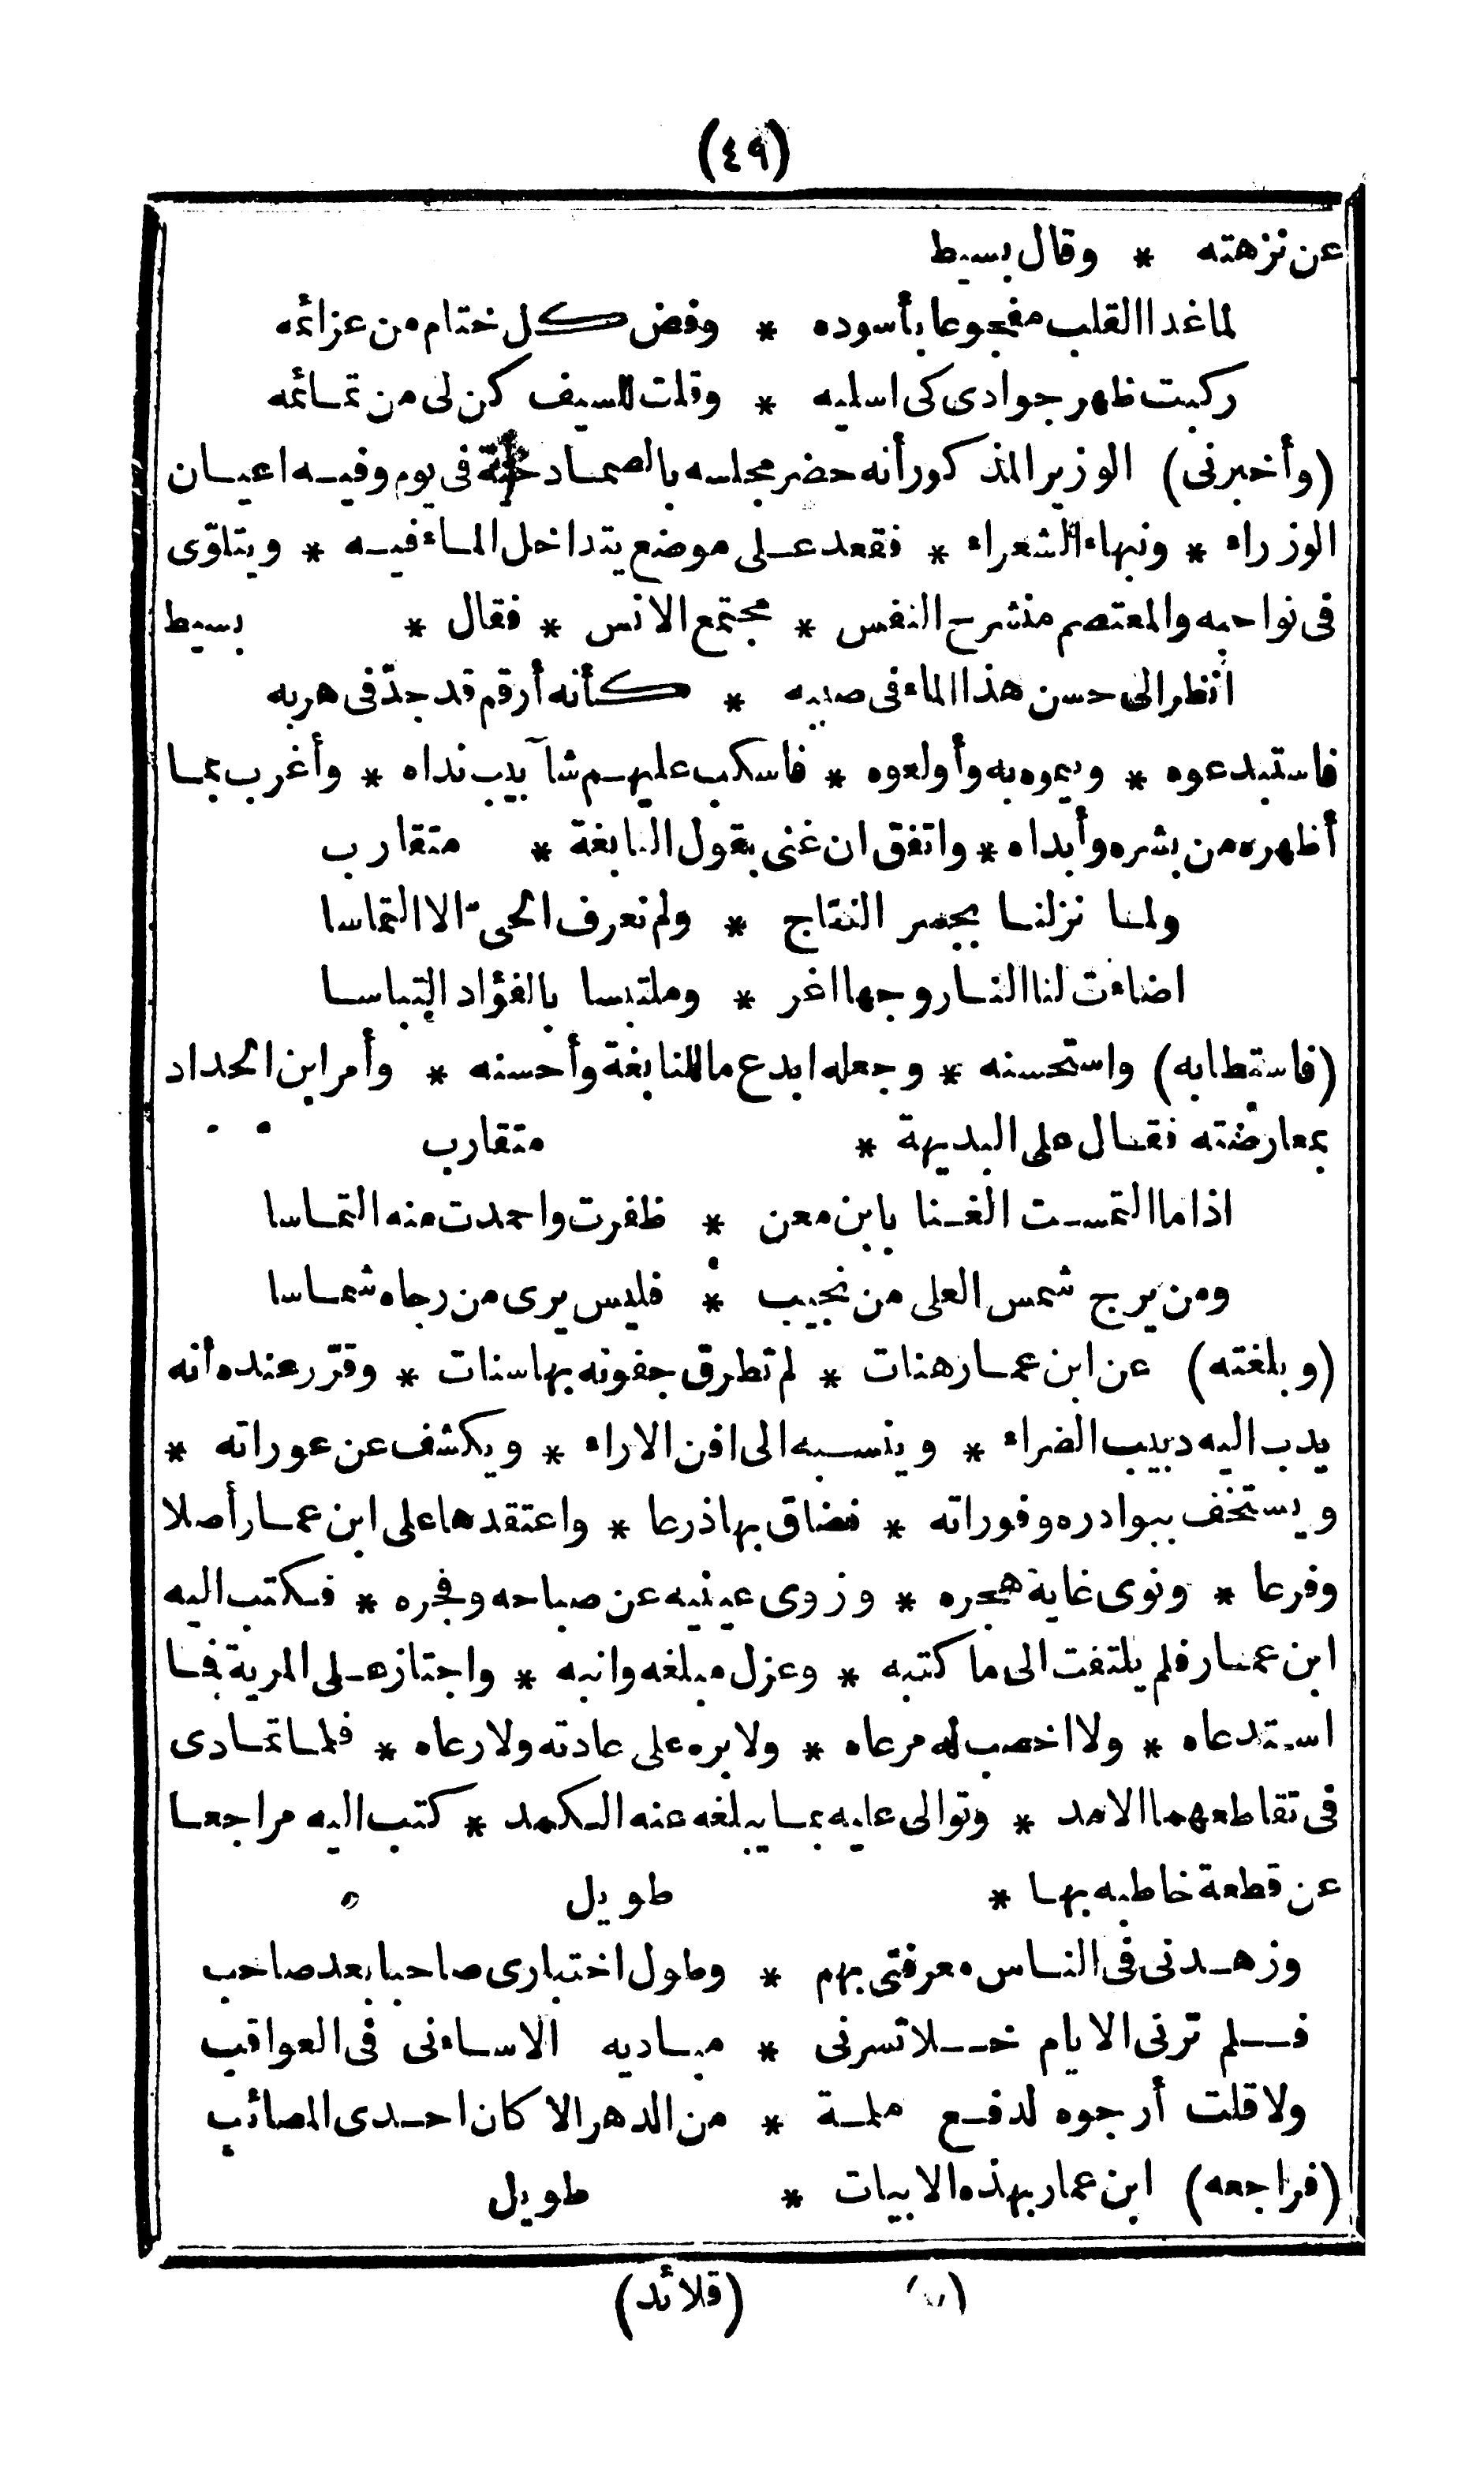 (٤٩)
عن نزهته * وقال بسيط
لما غدا القلب مفجوعا بأسوده * وفض كل ختام من عزائمه
ركبت ظهر جوادى كى اسليه * وقلت للسيف كن لى من تمائمه
(وأخبرنى) الوزير المذكور أنه حضر مجلسه بالصمادحية فى يوم وفيه اعيان
الوزراء * ونبهاء الشعراء * فقعد على موضع يتداخل الماء فيه * ويتلوّى
فى نواحيه والمعتصم منشرح النفس * مجتمع الانس * فقال * بسيط
انظر الى حسن هذا الماء فى صببه * كأنه أرقم قد جدّ فى هربه
فاستبدعوه * ويموه به وأولعوه * فاسكب عليهم شآبيب نداه * وأغرب بما
أظهره من بشره وأبداه * واتفق ان غنى بقول النابغة * متقارب
ولما نزلنا بجسر النتاج * ولم نعرف الحىّ الا التماسا
اضاءت لنا النار وجها اغر * وملتبسا بالفؤاد التباسا
(فاستطابه) واستحسنه * وجعله ابدع ما للنابغة وأحسنه * وأمر ابن الحداد
بمعارضته فقال على البديهة * متقارب
اذا ما التمست الغنا بابن معن * ظفرت واحمدت منه التماسا
ومن يرج شمس العلى من نجيب * فليس يرى من رجاه شماسا
(وبلغته) عن ابن عمار هنات * لم تطرق جفونه بها سنات * وقرّر عنده أنه
يدب اليه دبيب الضراء * وينسبه الى افن الاراء * ويكشف عن عوراته *
ويستخف ببوادره وفوراته * فضاق بها ذرعا * واعتقدها على ابن عمار أصلا
وفرعا * ونوى غاية هجره * وزوى عينيه عن صباحه وفجره * فكتب اليه
ابن عمار فلم يلتفت الى ما كتبه * وعزل مبلغه وانبه * واجتاز على المرية فما
استدعاه * ولا اخصب له مرعاه * ولا بره على عادته ولا رعاه * فلما تمادى
فى تقاطعهما الامد * وتوالى عليه بما يبلغه عنه الكمد * كتب اليه مراجعا
عن قطعة خاطبه بها * طويل ه
وزهدنى فى الناس معرفتى بهم * وطول اختبارى صاحبا بعد صاحب
فلم ترنى الايام خلا تسرنى * مباديه الا ساءنى فى العواقب
ولا قلت أرجوه لدفع ملمة * من الدهر الا كان احدى المصائب
(فراجعه) ابن عمار بهذه الابيات * طويل
(قلائد)